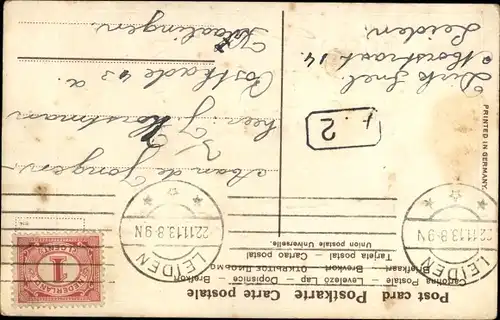 Post card Postkarte Carte postale
Cartolina Postale — Levelező Lap — Dopisnice — Brefkort
Briefkaart — Brevkort — ОТКРЫТОЕ ПИСЬМО
Tarjeta postal — Carte postal
Union postale Universelle.
PRINTED IN GERMANY.
NEDERLAND
1
CENT
LEIDEN
22.11.13.8-9N
LEIDEN
22.11.13.8-9N
2
Aan de Jongen
heer J.
Horstman
Postkade 43 a.
Vlaardingen
Dirk Snel.
Morschstraat 14.
Leiden